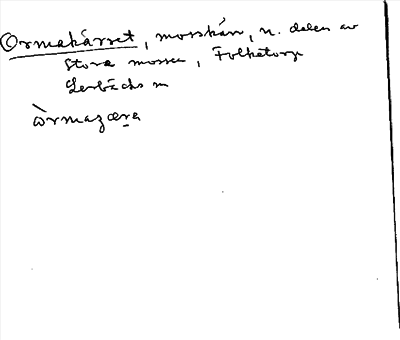 Ormakärret, mosskärr, n. delen av
Stora mossen, Folketorp
Lerbäcks sn
òrmaʒæra